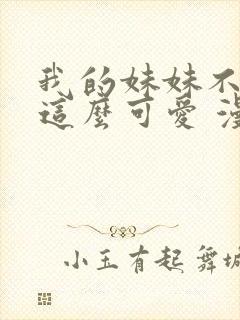 我的妹妹不
這麼可愛 漫
小玉有起 舞城